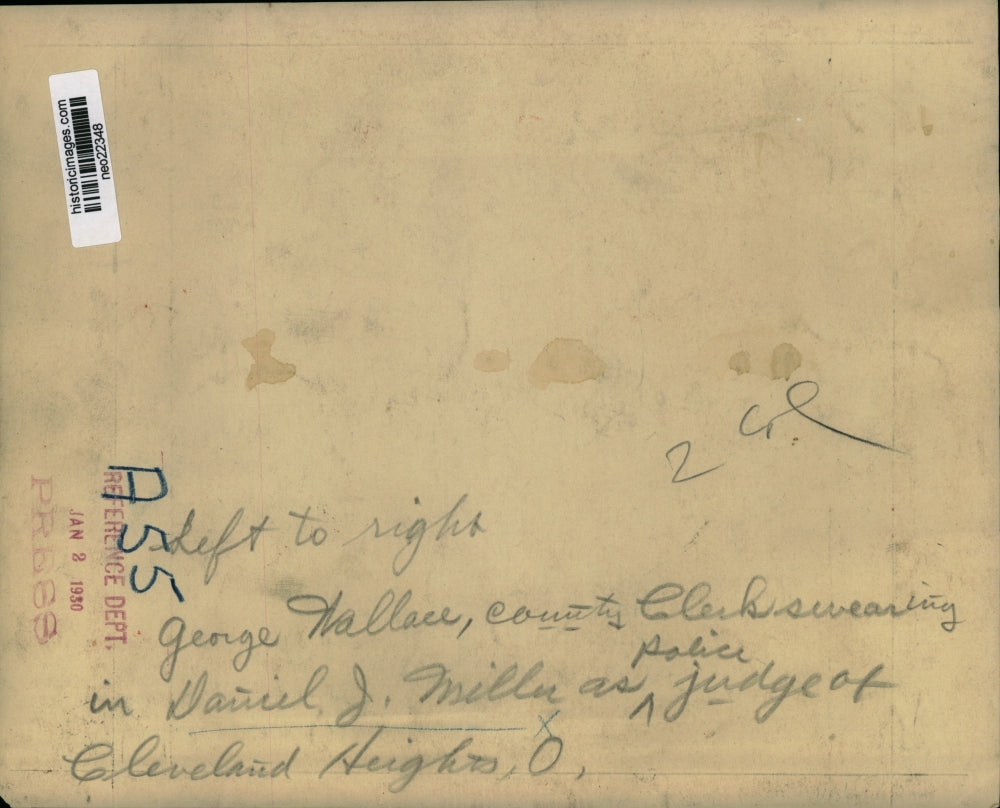 historicimages.com
neo22348
A55
REFERENCE DEPT.
JAN 2 1930
Left to right
George Wallace, county Clerk swearing
police
in Daniel J. Miller as ^ judge of
x
Cleveland Heights, O,
2